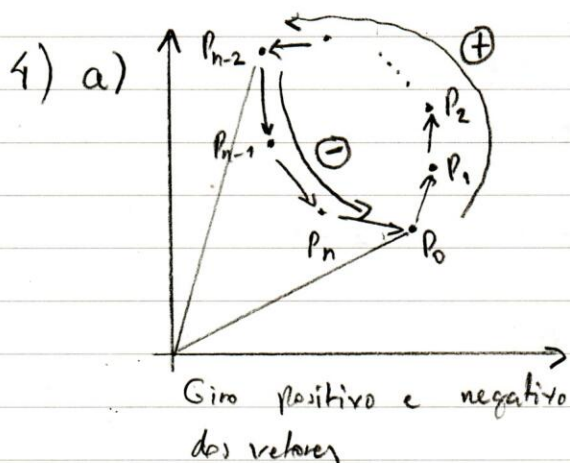 4) a)
P_{n-2}
⊕
P_2
P_{n-1}
⊖
P_1
P_n
P_0
Giro positivo e negativo
dos vetores